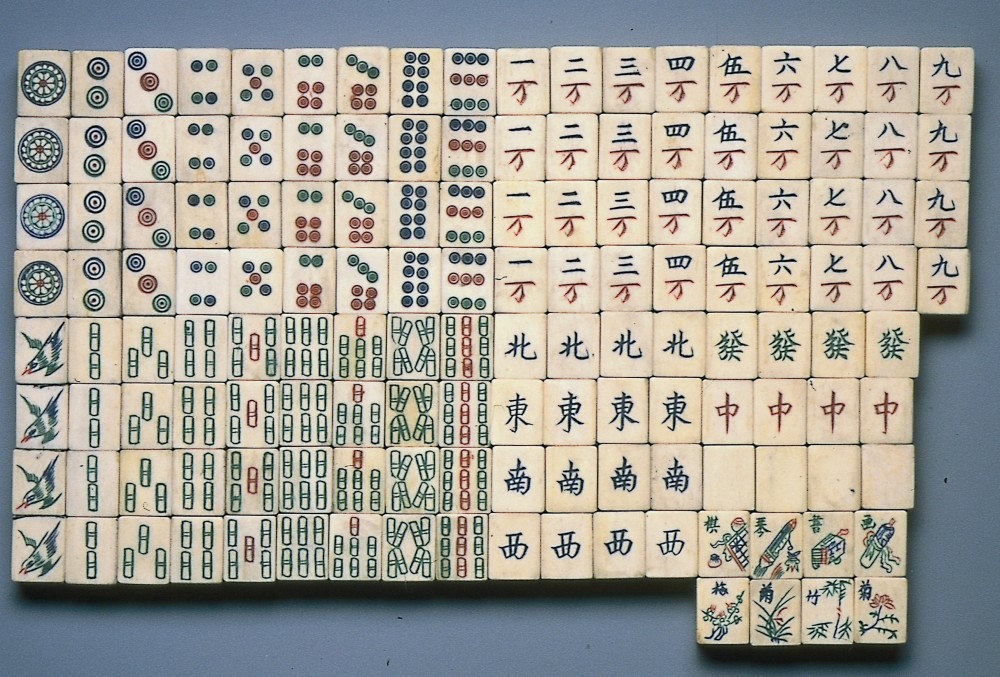 一 二 三 四 伍 六 七 八 九
万 万 万 万 万 万 万 万 万
一 二 三 四 伍 六 七 八 九
万 万 万 万 万 万 万 万 万
一 二 三 四 伍 六 七 八 九
万 万 万 万 万 万 万 万 万
一 二 三 四 伍 六 七 八 九
万 万 万 万 万 万 万 万 万
北 北 北 北 發 發 發 發
東 東 東 東 中 中 中 中
南 南 南 南
西 西 西 西 棋 琴 書 画
梅 蘭 竹 菊